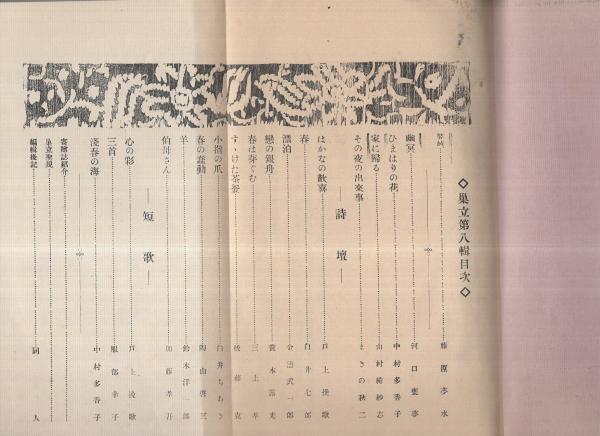 ◇巣立第八輯目次◇
藤原夢水
幽冥 河口亜夢
ひまはりの花 中村多香子
家に帰る 山村稀紗志
その夜の出来事 まきの秋二
―詩壇―
はかなの歓喜 戸上挽歌
春 臼井七郎
漂泊 金沼武一郎
戀の銀舟 露光
春は芽ぐむ 三上孝
すゝけた茶釜 後藤克
小指の爪 臼井ちわき
春の蠢動 陶山啓三
羊 鈴木洋一郎
伯母さん 加藤孝吾
―短歌―
心の彩 戸上挽歌
三首 服部幸子
淺春の海 中村多香子
寄贈誌紹介
巣立聖規
編輯後記 同人